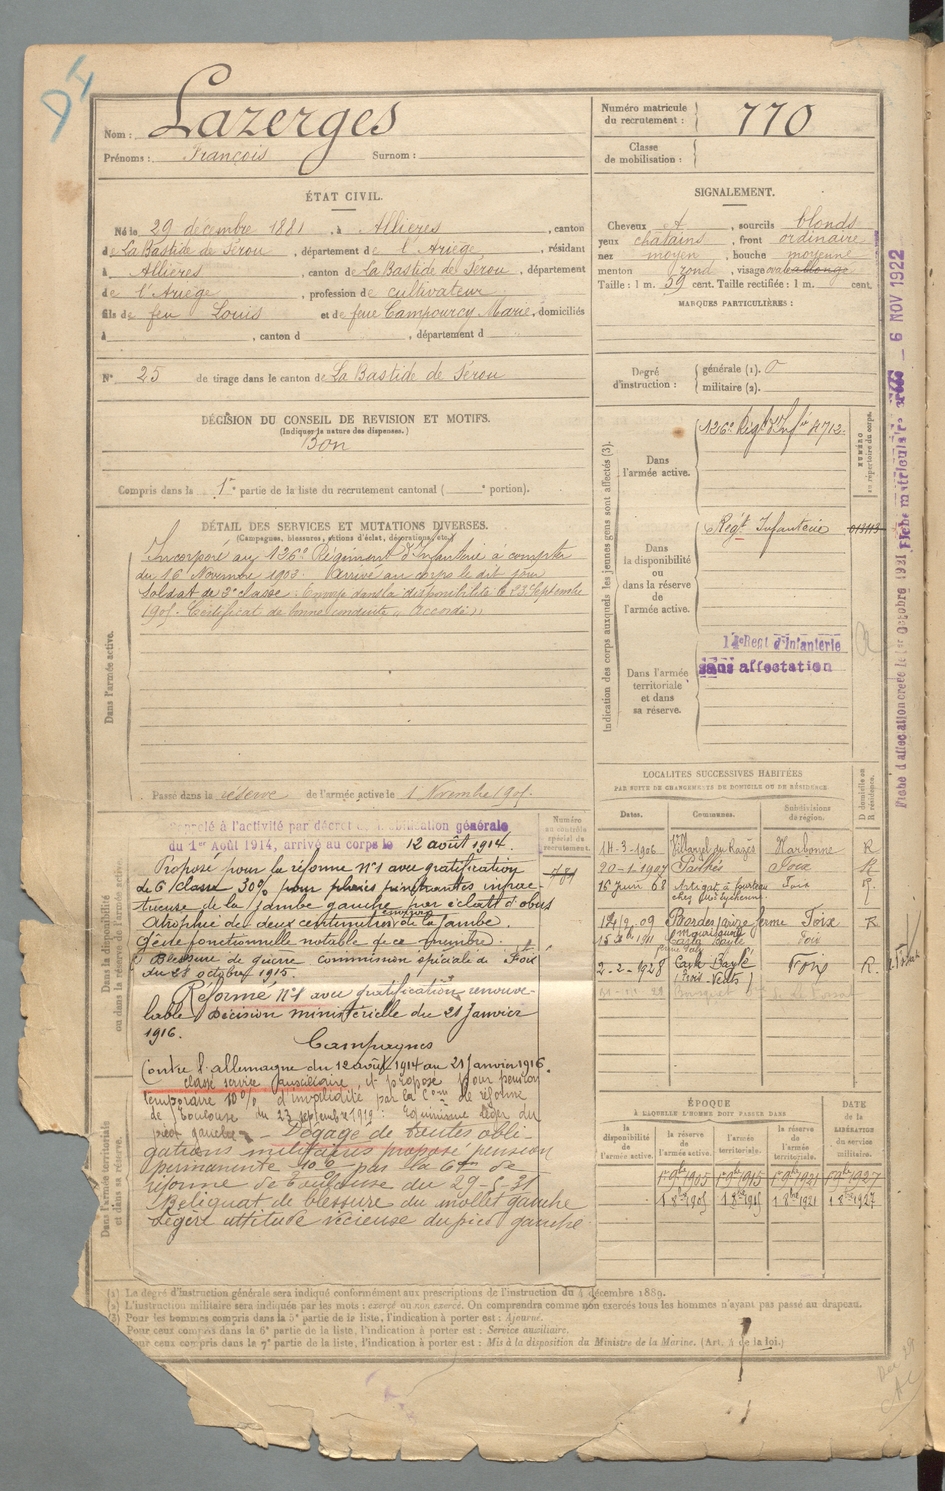 Nom : Lazerges
Prénoms : François Surnom :
Numéro matricule du recrutement : 770
Classe de mobilisation :
ÉTAT CIVIL.
Né le 29 décembre 1881, à Allières, canton
de La Bastide de Sérou, département de l'Ariège, résidant
à Allières, canton de La Bastide de Sérou, département
de l'Ariège, profession de cultivateur
fils de feu Louis et de feue Campourcy Marie, domiciliés
à , canton d , département d
N° 25 de tirage dans le canton de La Bastide de Sérou
DÉCISION DU CONSEIL DE REVISION ET MOTIFS.
(Indiquer la nature des dispenses.)
Bon
Compris dans la 1re partie de la liste du recrutement cantonal ( e portion).
SIGNALEMENT.
Cheveux , sourcils blonds
yeux châtains, front ordinaire
nez moyen, bouche moyenne
menton rond, visage ovale allongé
Taille : 1 m. 59 cent. Taille rectifiée : 1 m. cent.
MARQUES PARTICULIÈRES :
Degré d'instruction : générale (1). 0
militaire (2).
Indication des corps auxquels les jeunes gens sont affectés (3).
NUMÉRO au répertoire du corps.
Dans l'armée active. 126e Régt d'Infie 4712
Dans la disponibilité ou dans la réserve de l'armée active. Régt Infanterie
Dans l'armée territoriale et dans sa réserve.
14e Regt d'Infanterie
sans affectation
Fiche d'affectation créée le 1er Octobre 1921
Fiche matriculaire
6 NOV 1922
DÉTAIL DES SERVICES ET MUTATIONS DIVERSES.
(Campagnes, blessures, actions d'éclat, décorations, etc.)
Dans l'armée active.
Incorporé au 126e Régiment d'Infanterie à compter
du 16 Novembre 1903. Arrivé au corps le dit jour
soldat de 2e classe. Envoyé dans la disponibilité le 23 Septembre
1905. Certificat de bonne conduite « Accordé »
Passé dans la réserve de l'armée active le 1 Novembre 1905.
Dans la disponibilité ou dans la réserve de l'armée active.
Numéro au contrôle spécial du recrutement.
781
Rappelé à l'activité par décret de mobilisation générale
du 1er Août 1914, arrivé au corps le 12 août 1914.
Proposé pour la réforme n°1 avec gratification
de 6e classe 30% pour plaies
de la jambe gauche par éclat d'obus
Atrophie de deux centimètres environ de la jambe.
Gêne fonctionnelle notable de ce membre.
Blessure de guerre commission spéciale de Foix
du 28 octobre 1915.
Réformé n°1 avec gratification renouve-
lable Décision ministérielle du 21 Janvier
1916.
Campagnes
Contre l'allemagne du 12 août 1914 au 21 Janvier 1916.
classé service auxiliaire, et proposé pour pension
temporaire 10% d'invalidité par la Com de réforme
de Toulouse du 23 septembre 1919 : Equinisme léger du
pied gauche. Dégagé de toutes obli-
gations militaires proposé pension
permanente 10% par la Con de
réforme de Toulouse du 29-5-31
Reliquat de blessure du mollet gauche
Légère attitude vicieuse du pied gauche
Dans l'armée territoriale et dans sa réserve.
LOCALITÉS SUCCESSIVES HABITÉES
PAR SUITE DE CHANGEMENTS DE DOMICILE OU DE RÉSIDENCE.
Dates. Communes. Subdivisions de région. D domicile ou R résidence.
14-3-1906 Villarzel du Razès Narbonne R
20-1-1907 Pailhès Foix R
Foix
12/9 09 Bordes ferme Foix R
1911 Foix
2-2-1928 Foix R.
ÉPOQUE
À LAQUELLE L'HOMME DOIT PASSER DANS
la disponibilité de l'armée active. la réserve de l'armée active. l'armée territoriale. la réserve de l'armée territoriale. DATE de la LIBÉRATION du service militaire.
1 9bre 1905 1 9bre 1915 1 9bre 1921 1 9bre 1927
1 8bre 1905 1 8bre 1915 1 8bre 1921 1 8bre 1927
(1) Le degré d'instruction générale sera indiqué conformément aux prescriptions de l'instruction du 4 décembre 1889.
(2) L'instruction militaire sera indiquée par les mots : exercé ou non exercé. On comprendra comme non exercés tous les hommes n'ayant pas passé au drapeau.
(3) Pour les hommes compris dans la 5e partie de la liste, l'indication à porter est : Ajourné.
Pour ceux compris dans la 6e partie de la liste, l'indication à porter est : Service auxiliaire.
Pour ceux compris dans la 7e partie de la liste, l'indication à porter est : Mis à la disposition du Ministre de la Marine. (Art. 4 de la loi.)